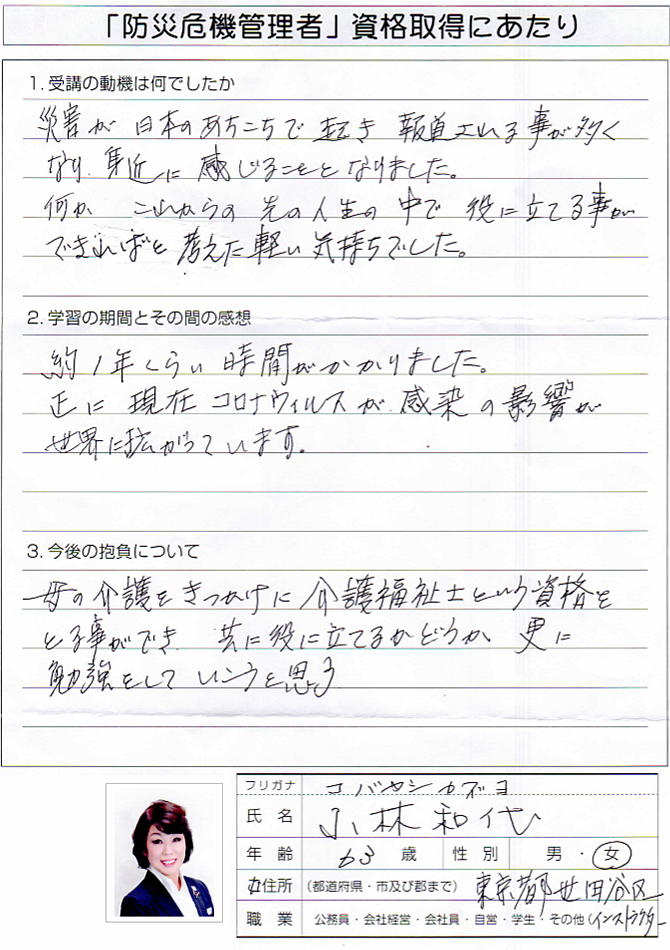 「防災危機管理者」資格取得にあたり
1. 受講の動機は何でしたか
災害が 日本のあちこちで 起き 報道される事が多く
なり、身近に 感じることとなりました。
何か これからの 先の人生の 中で 役に立てる事が
できればと 考えた軽い 気持ちでした。
2. 学習の期間とその間の感想
約1年くらい 時間がかかりました。
正に 現在 コロナウィルスが 感染の影響が
世界に拡がっています。
3. 今後の抱負について
母の介護をきっかけに 介護福祉士という資格を
とる事ができ 共に役に立てるかどうか、更に
勉強をして いこうと思う
フリガナ コバヤシ カズヨ
氏名 小林 和代
年齢 63 歳 性別 男・女
住所 (都道府県・市及び郡まで) 東京都世田谷区
職業 公務員・会社経営・会社員・自営・学生・その他(インストラクター